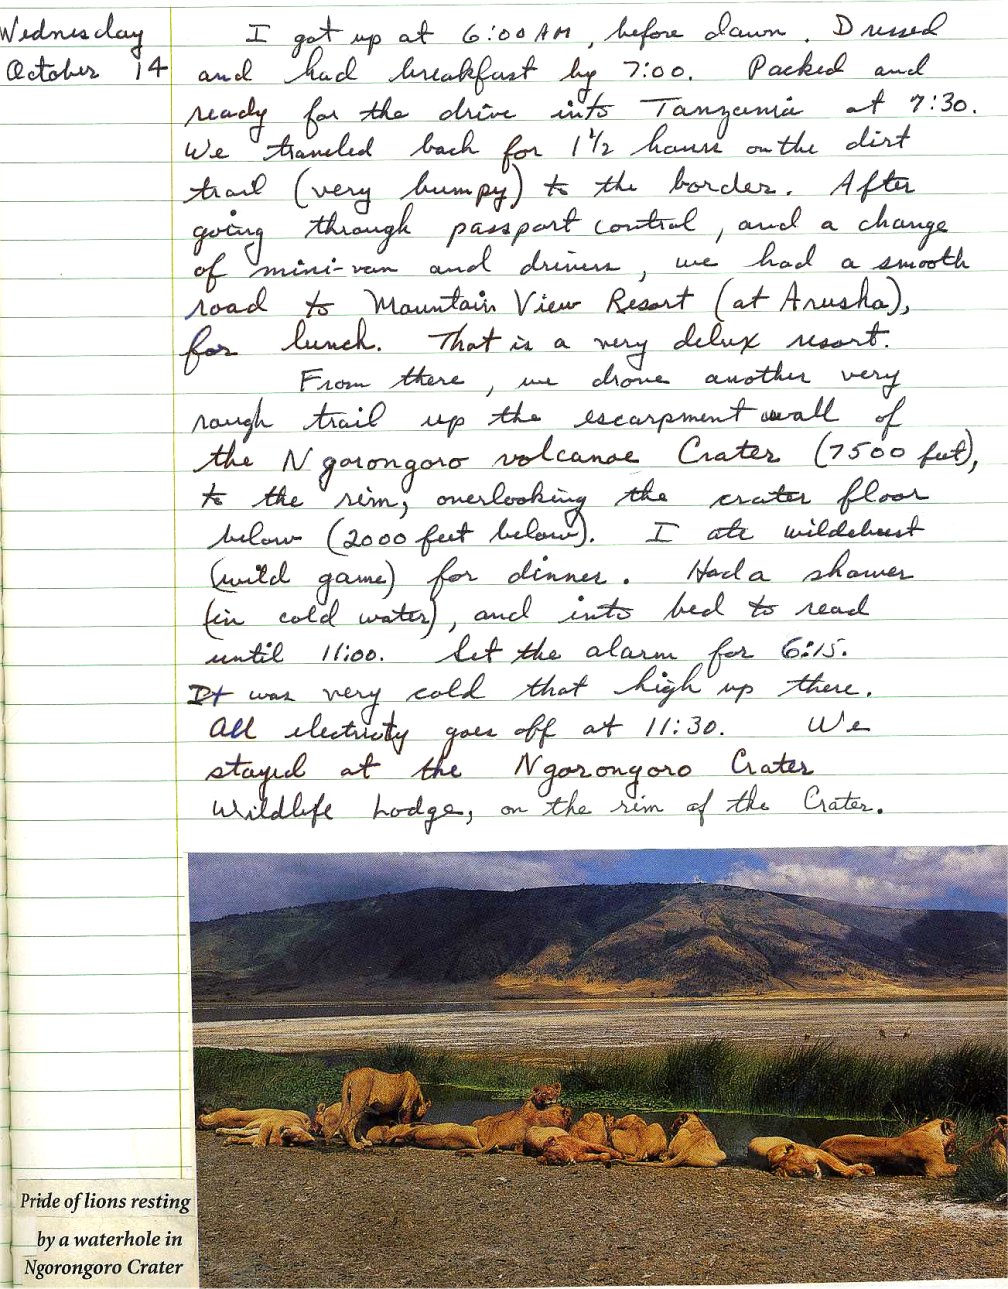 Wednesday
October 14
I got up at 6:00 AM, before dawn. Dressed
and had breakfast by 7:00. Packed and
ready for the drive into Tanzania at 7:30.
We traveled back for 1 1/2 hours on the dirt
trail (very bumpy) to the border. After
going through passport control, and a change
of mini-van and drivers, we had a smooth
road to Mountain View Resort (at Arusha),
for lunch. That is a very delux resort.
From there, we drove another very
rough trail up the escarpment wall of
the Ngorongoro volcanoe Crater (7500 feet),
to the rim, overlooking the crater floor
below (2000 feet below). I ate wildebeest
(wild game) for dinner. Had a shower
(in cold water), and into bed to read
until 11:00. Set the alarm for 6:15.
It was very cold that high up there.
All electricty goes off at 11:30. We
stayed at the Ngorongoro Crater
Wildlife Lodge, on the rim of the Crater.
Pride of lions resting
by a waterhole in
Ngorongoro Crater